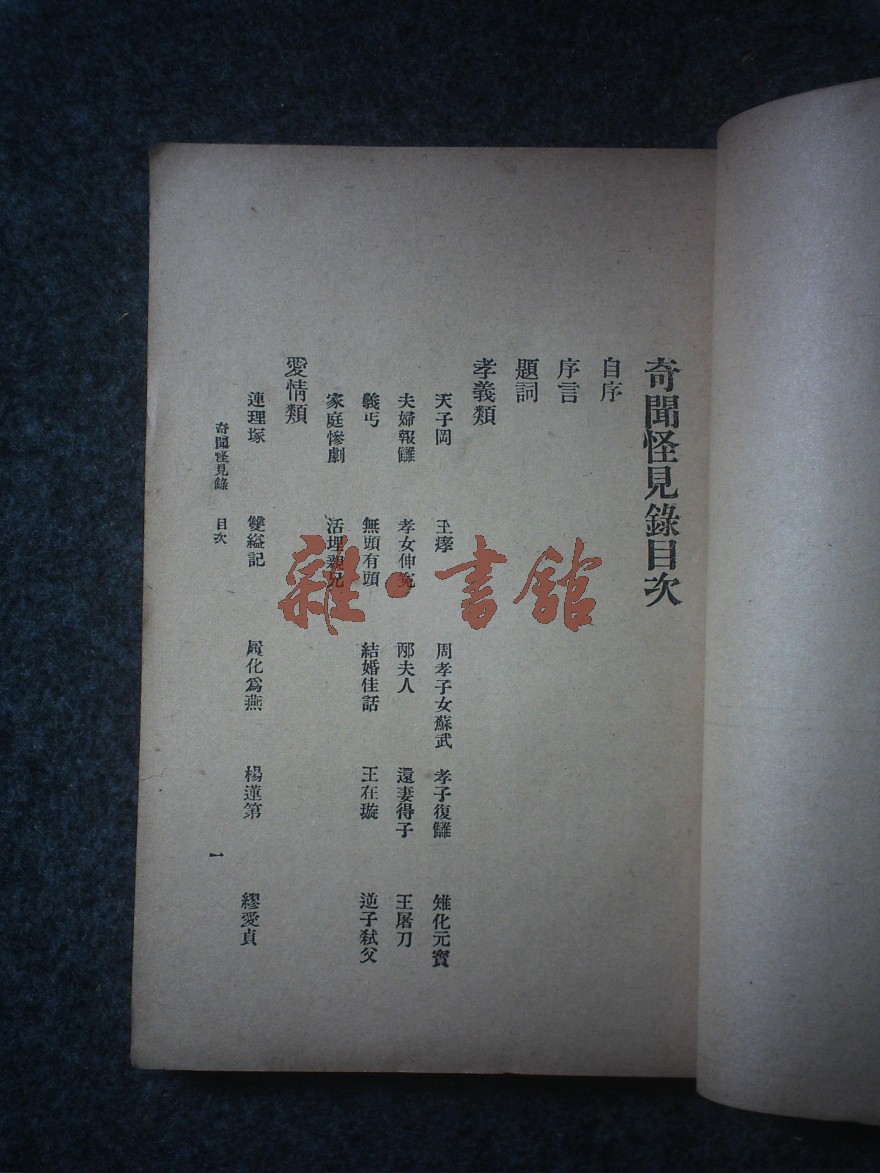 奇聞怪見錄目次
自序
序言
題詞
孝義類
天子岡 王孝 周孝子女蘇武 孝子復讎 雉化元寶
夫婦報讎 孝女伸冤 邴夫人 還妻得子 王屠刀
義丐 無頭有頭 結婚佳話 王在璇 逆子弒父
家庭慘劇 活埋親兄
愛情類
連理塚 雙縊記 屨化為燕 楊蓮第 繆愛貞
奇聞怪見錄 目次 一
雜·書館